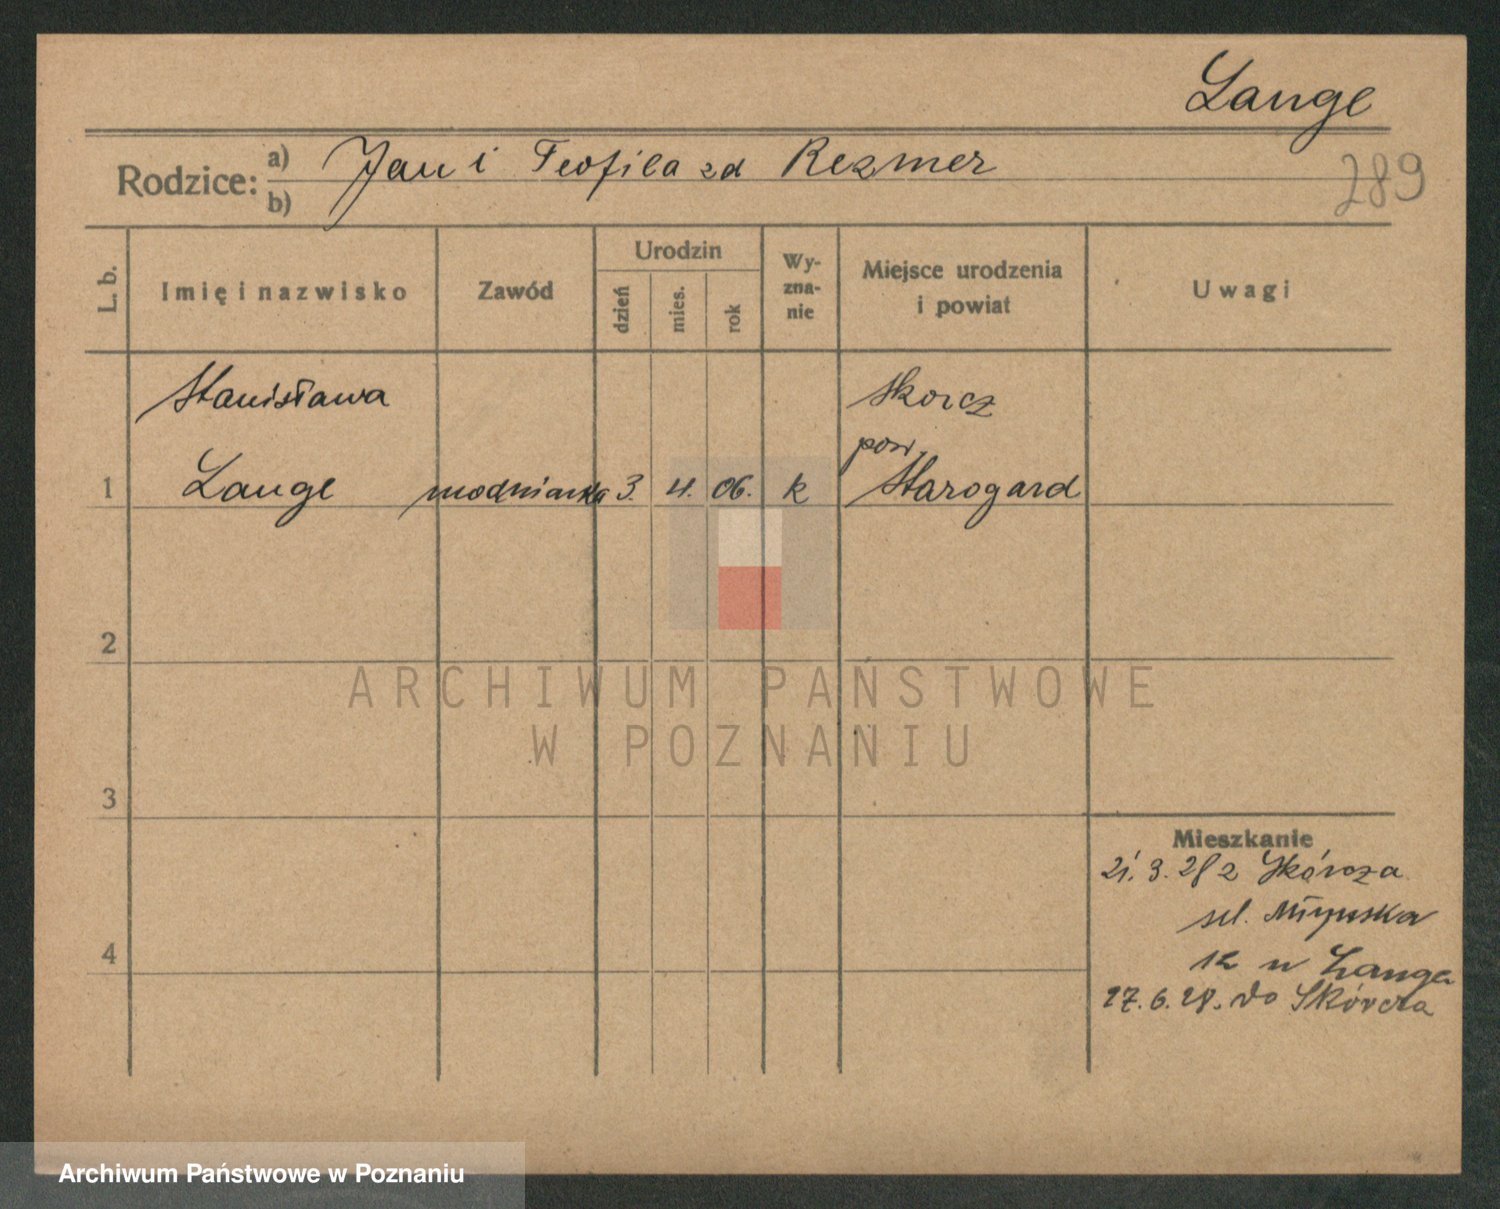 Lange
Rodzice: a) Jan i Teofila zd Rezmer
b)
289
L. b. Imię i nazwisko Zawód Urodzin dzień mies. rok Wy-zna-nie Miejsce urodzenia i powiat Uwagi
Stanisława Skorcz
pow.
1 Lange modniarka 3. 4. 06. k Starogard
2
ARCHIWUM PAŃSTWOWE
W POZNANIU
3
Mieszkanie
21. 3. 28 z Skórcza
ul. Młyńska
12 u Lange
4
27. 6. 28. do Skórcza
Archiwum Państwowe w Poznaniu